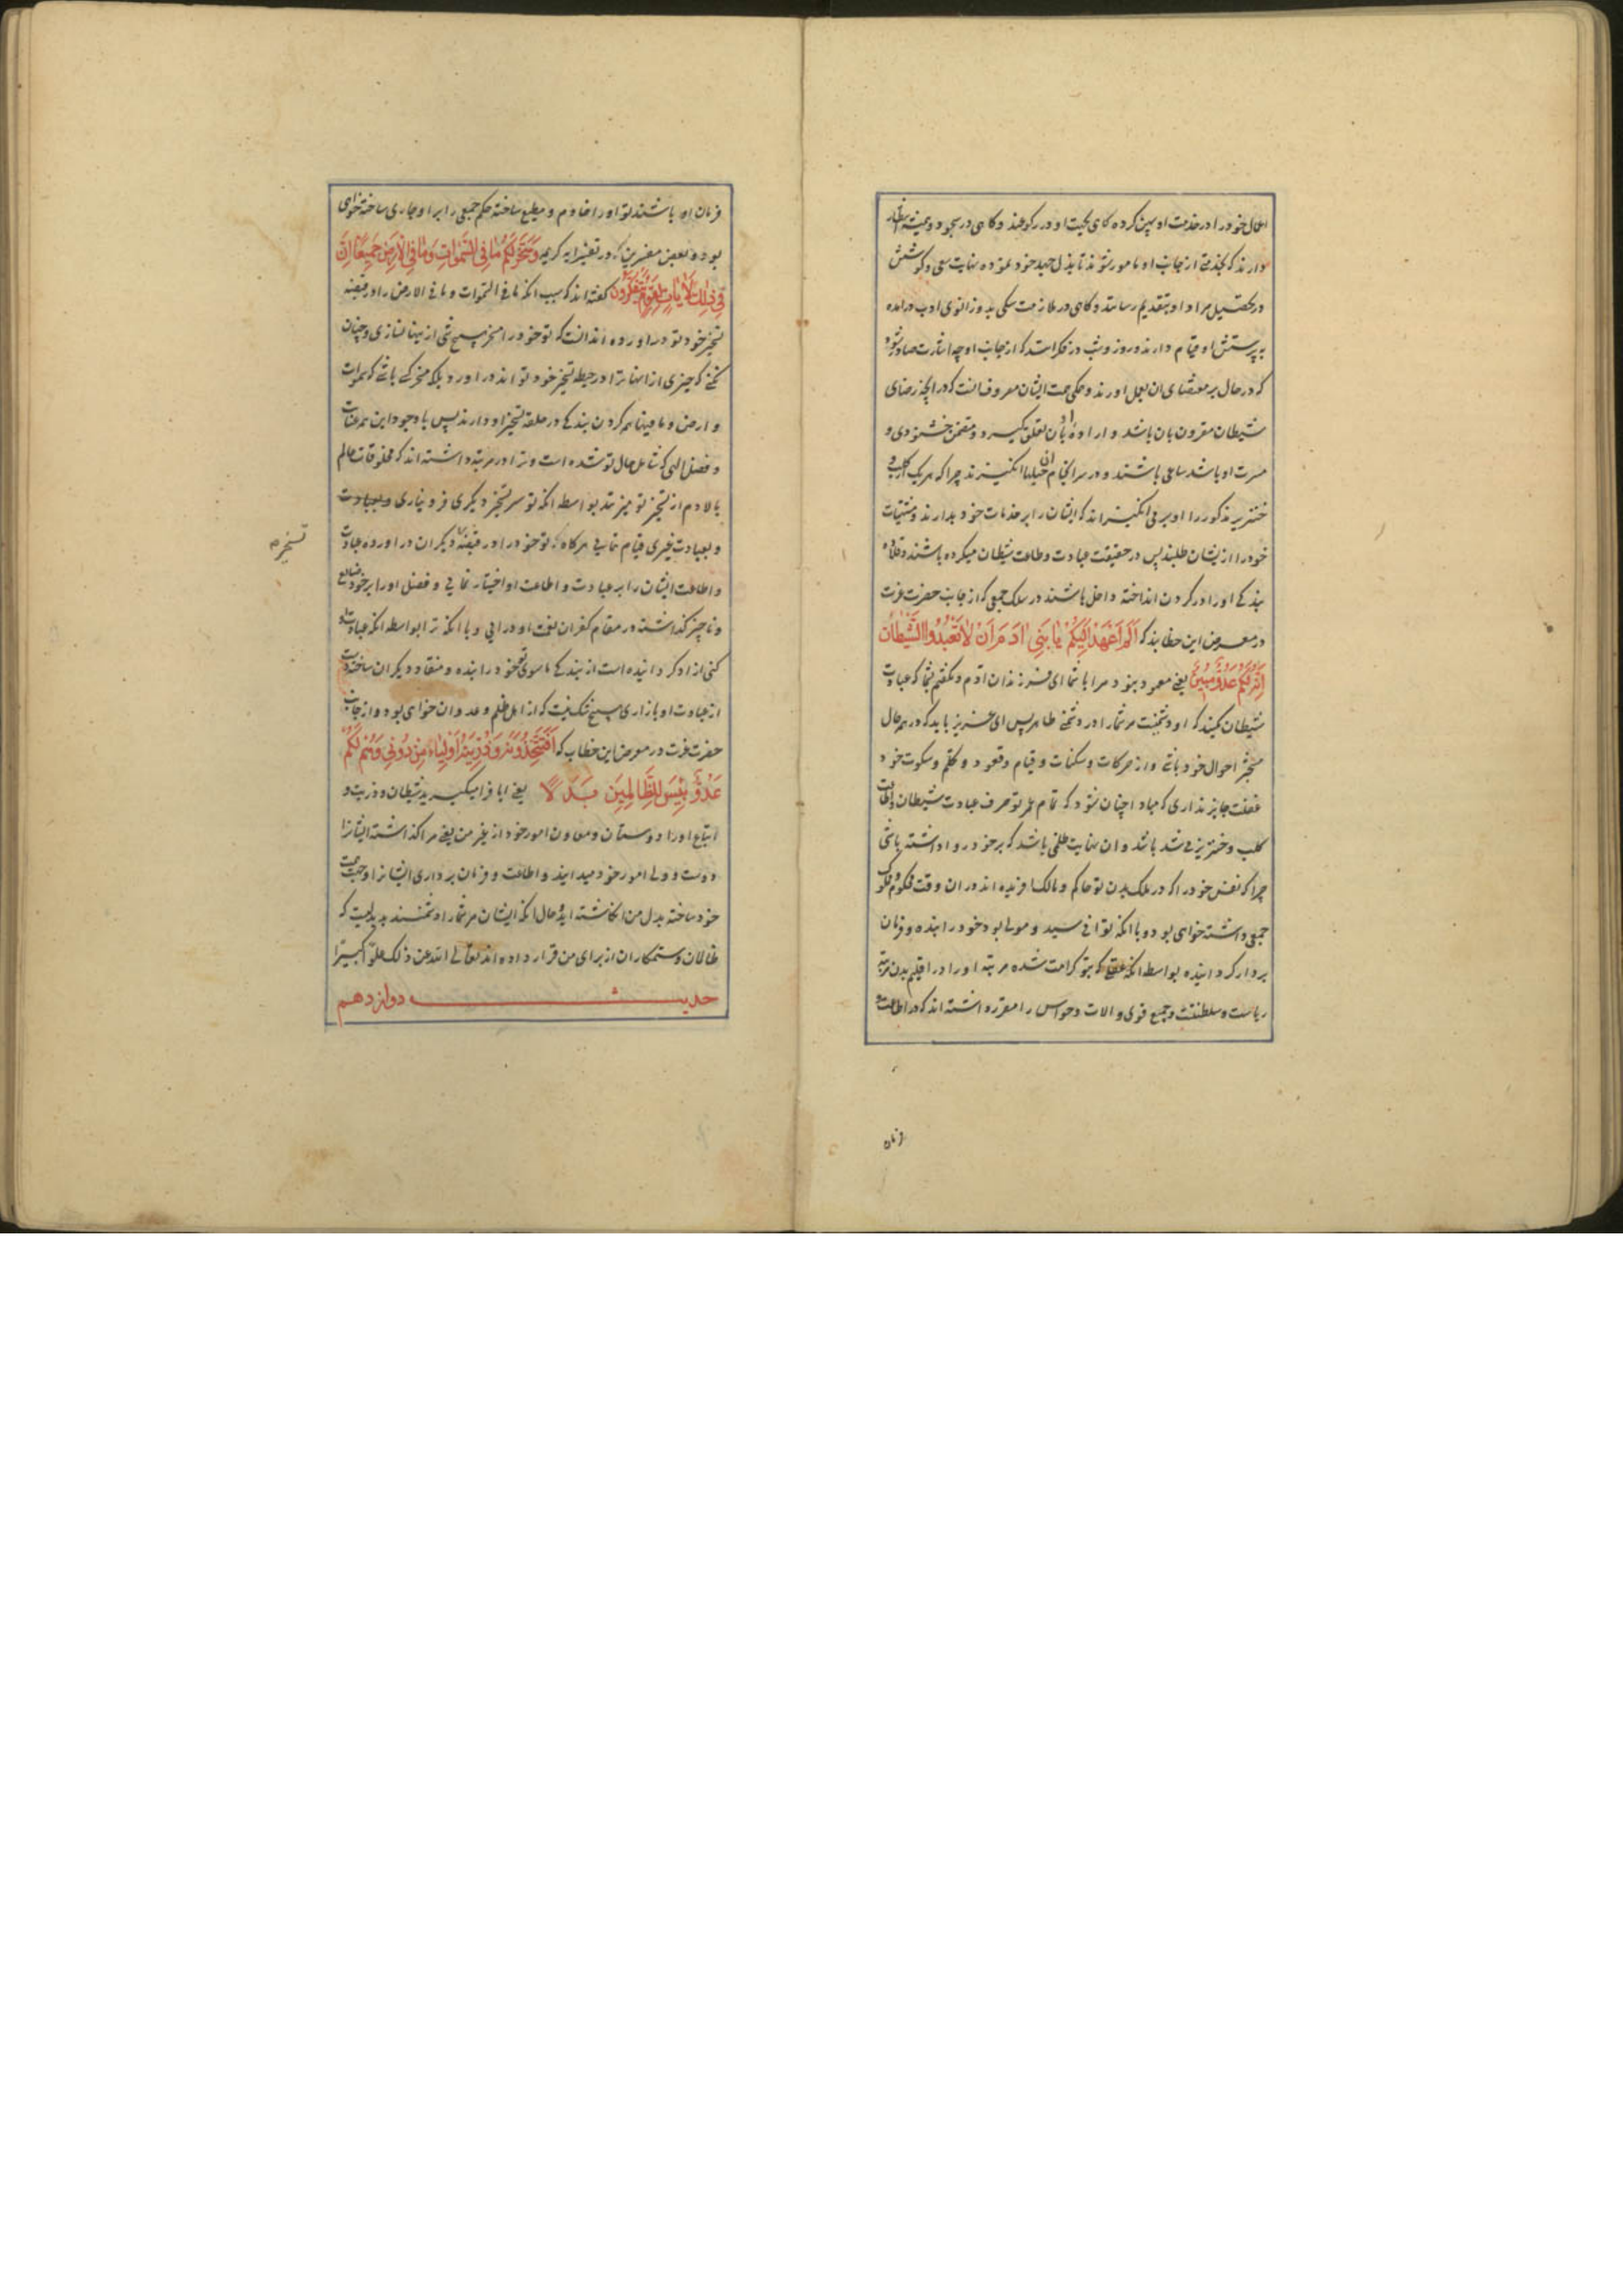 اعمال خود را در خدمت او پهن کرده گاهی بجهت او در رکوعند و گاهی در سجود و همیشه انتظار
دارند که بخدمتی از جانب او مامور شوند تا بذل جهد خود نموده نهایت سعی و کوشش
در تحصیل مراد او بتقدیم رسانند و گاهی در ملازمت سگی بدو زانوی ادب درامده
به پرستش او قیام دارند و روز و شب در فکر انند که از جانب او چه اشارت صادر شود
که در حال بر مقتضای ان بعمل اورند و همکی همت ایشان مصروف انست که در انچه رضای
شیطان مقرون بان باشد و ارادهٔ او بان تعلق گیرد و متضمن خشنودی و
مسرت او باشد ساعی باشند و در سرانجام ان حیلها انگیزند چرا که هر یک از کلب و
خنزیر مذکور را او بر می انگیزاند که ایشان را بر خدمات خود بدارند و مشتهیات
خود را از ایشان طلبند پس در حقیقت عبادت و طاعت شیطان میکرده باشند و قلادهٔ
بندگی او را در گردن انداخته داخل باشند در سلک جمعی که از جانب حضرت عزت
در معرض این خطابند که اَلَمْ اَعْهَدْ اِلَيْكُمْ يٰا بَنٖى اٰدَمَ اَنْ لٰا تَعْبُدُوا الشَّيْطٰانَ
اِنَّهُ لَكُمْ عَدُوٌّ مُبٖينٌ یعنی معهود نبود مرا با شما ای فرزندان ادم و نگفتم بشما که عبادت
شیطان مکنید که او دشمنیست مر شما را در دشمنی ظاهر پس ای عزیز باید که در همه حال
متجثر احوال خود باشی و از حرکات و سکنات و قیام و قعود و تکلم و سکوت خود
غفلت جایز نداری که مبادا چنان شود که تمام عمر تو صرف عبادت شیطان و اطاعت
کلب و خنزیر می شده باشد و ان نهایت ظلمی باشد که بر خود روا داشته باشی
چرا که نفس خود را که در ملک بدن تو حاکم و مالک افریده اند در ان وقت محکوم و مملوک
جمعی داشته خواهی بود و با انکه تو انی سید و مولی بود خود را بنده و فرمان
بردار گردانیده بواسطه انکه عقلی که بتو کرامت شده مرتبه او را در اقلیم بدن مرتبه
ریاست و سلطنت و جمیع قوی و الات و حواس را مقرر داشته اند که در اطاعت و
فرمان
فرمان او باشند تو او را خادم و مطیع ساخته حکم جمعی را بر او جاری ساخته خواهی
بود و بعض مفسرین که در تفسیر ایه کریمه وَسَخَّرَ لَكُمْ مٰا فِى السَّمٰوٰاتِ وَمٰا فِى الْاَرْضِ جَمٖيعًا اِنَّ
فٖى ذٰلِكَ لَاٰيٰاتٍ لِقَوْمٍ يَتَفَكَّرُونَ گفته اند که سبب انکه ما فی السموات و ما فی الارض را در قبضه
تسخیر خود تو دراورده اند انست که تو خود را مسخر هیچ شی از اینها نسازی و چنان
نکنی که چیزی از اینها ترا در حیطه تسخیر خود تواند دراورد بلکه مسخر کسی باشی که سموات
و ارض و ما فیها سر گردن بندگی در حلقه تسخیر او دارند پس با وجود این همه عنایت
و فضل الهی که شامل حال تو شده است و ترا در مرتبه داشته اند که مخلوقات عالم
بالا دم از تسخیر تو میزنند بواسطه انکه تو سر بتسخیر دیگری فرو نیاری و بعبادت
و بعبادت غیری قیام ننمایی هرگاه که تو خود را در قبضهٔ دیگران دراورده عبادت
تسخیر م
و اطاعت ایشان را بر عبادت و اطاعت او اختیار نمایی و فضل او را بر خود ضایع
و ناچیز گذاشته در مقام کفران نعمت او درایی و با انکه ترا بواسطه انکه عبادت او
کنی ازاد گردانیده است از بندگی ما سوی تو خود را بنده و منقاد دیگران ساخته دست
از عبادت او بازداری هیچ شک نیست که از اهل ظلم و عدوان خواهی بود و از جانب
حضرت عزت در معرض این خطاب که اَفَتَتَّخِذُونَهُ وَذُرِّيَّتَهُ اَوْلِيٰاءَ مِنْ دُونٖى وَهُمْ لَكُمْ
عَدُوٌّ بِئْسَ لِلظّٰالِمٖينَ بَدَلًا یعنی ایا فرا میگیرید شیطان و ذریت و
اتباع او را دوستان و معاون امور خود از غیر من یعنی مرا گذاشته ایشانرا
دوست و ولی امور خود میدانید و اطاعت و فرمان برداری ایشانرا وجه همت
خود ساخته بدل من انگاشته اید و حال انکه ایشان مر شما را دشمنند بد بدلیست که
ظالمان و ستمکاران از برای من قرار داده اند تعالی الله عن ذلک علوّا کبیرًا
حدیث دوازدهم